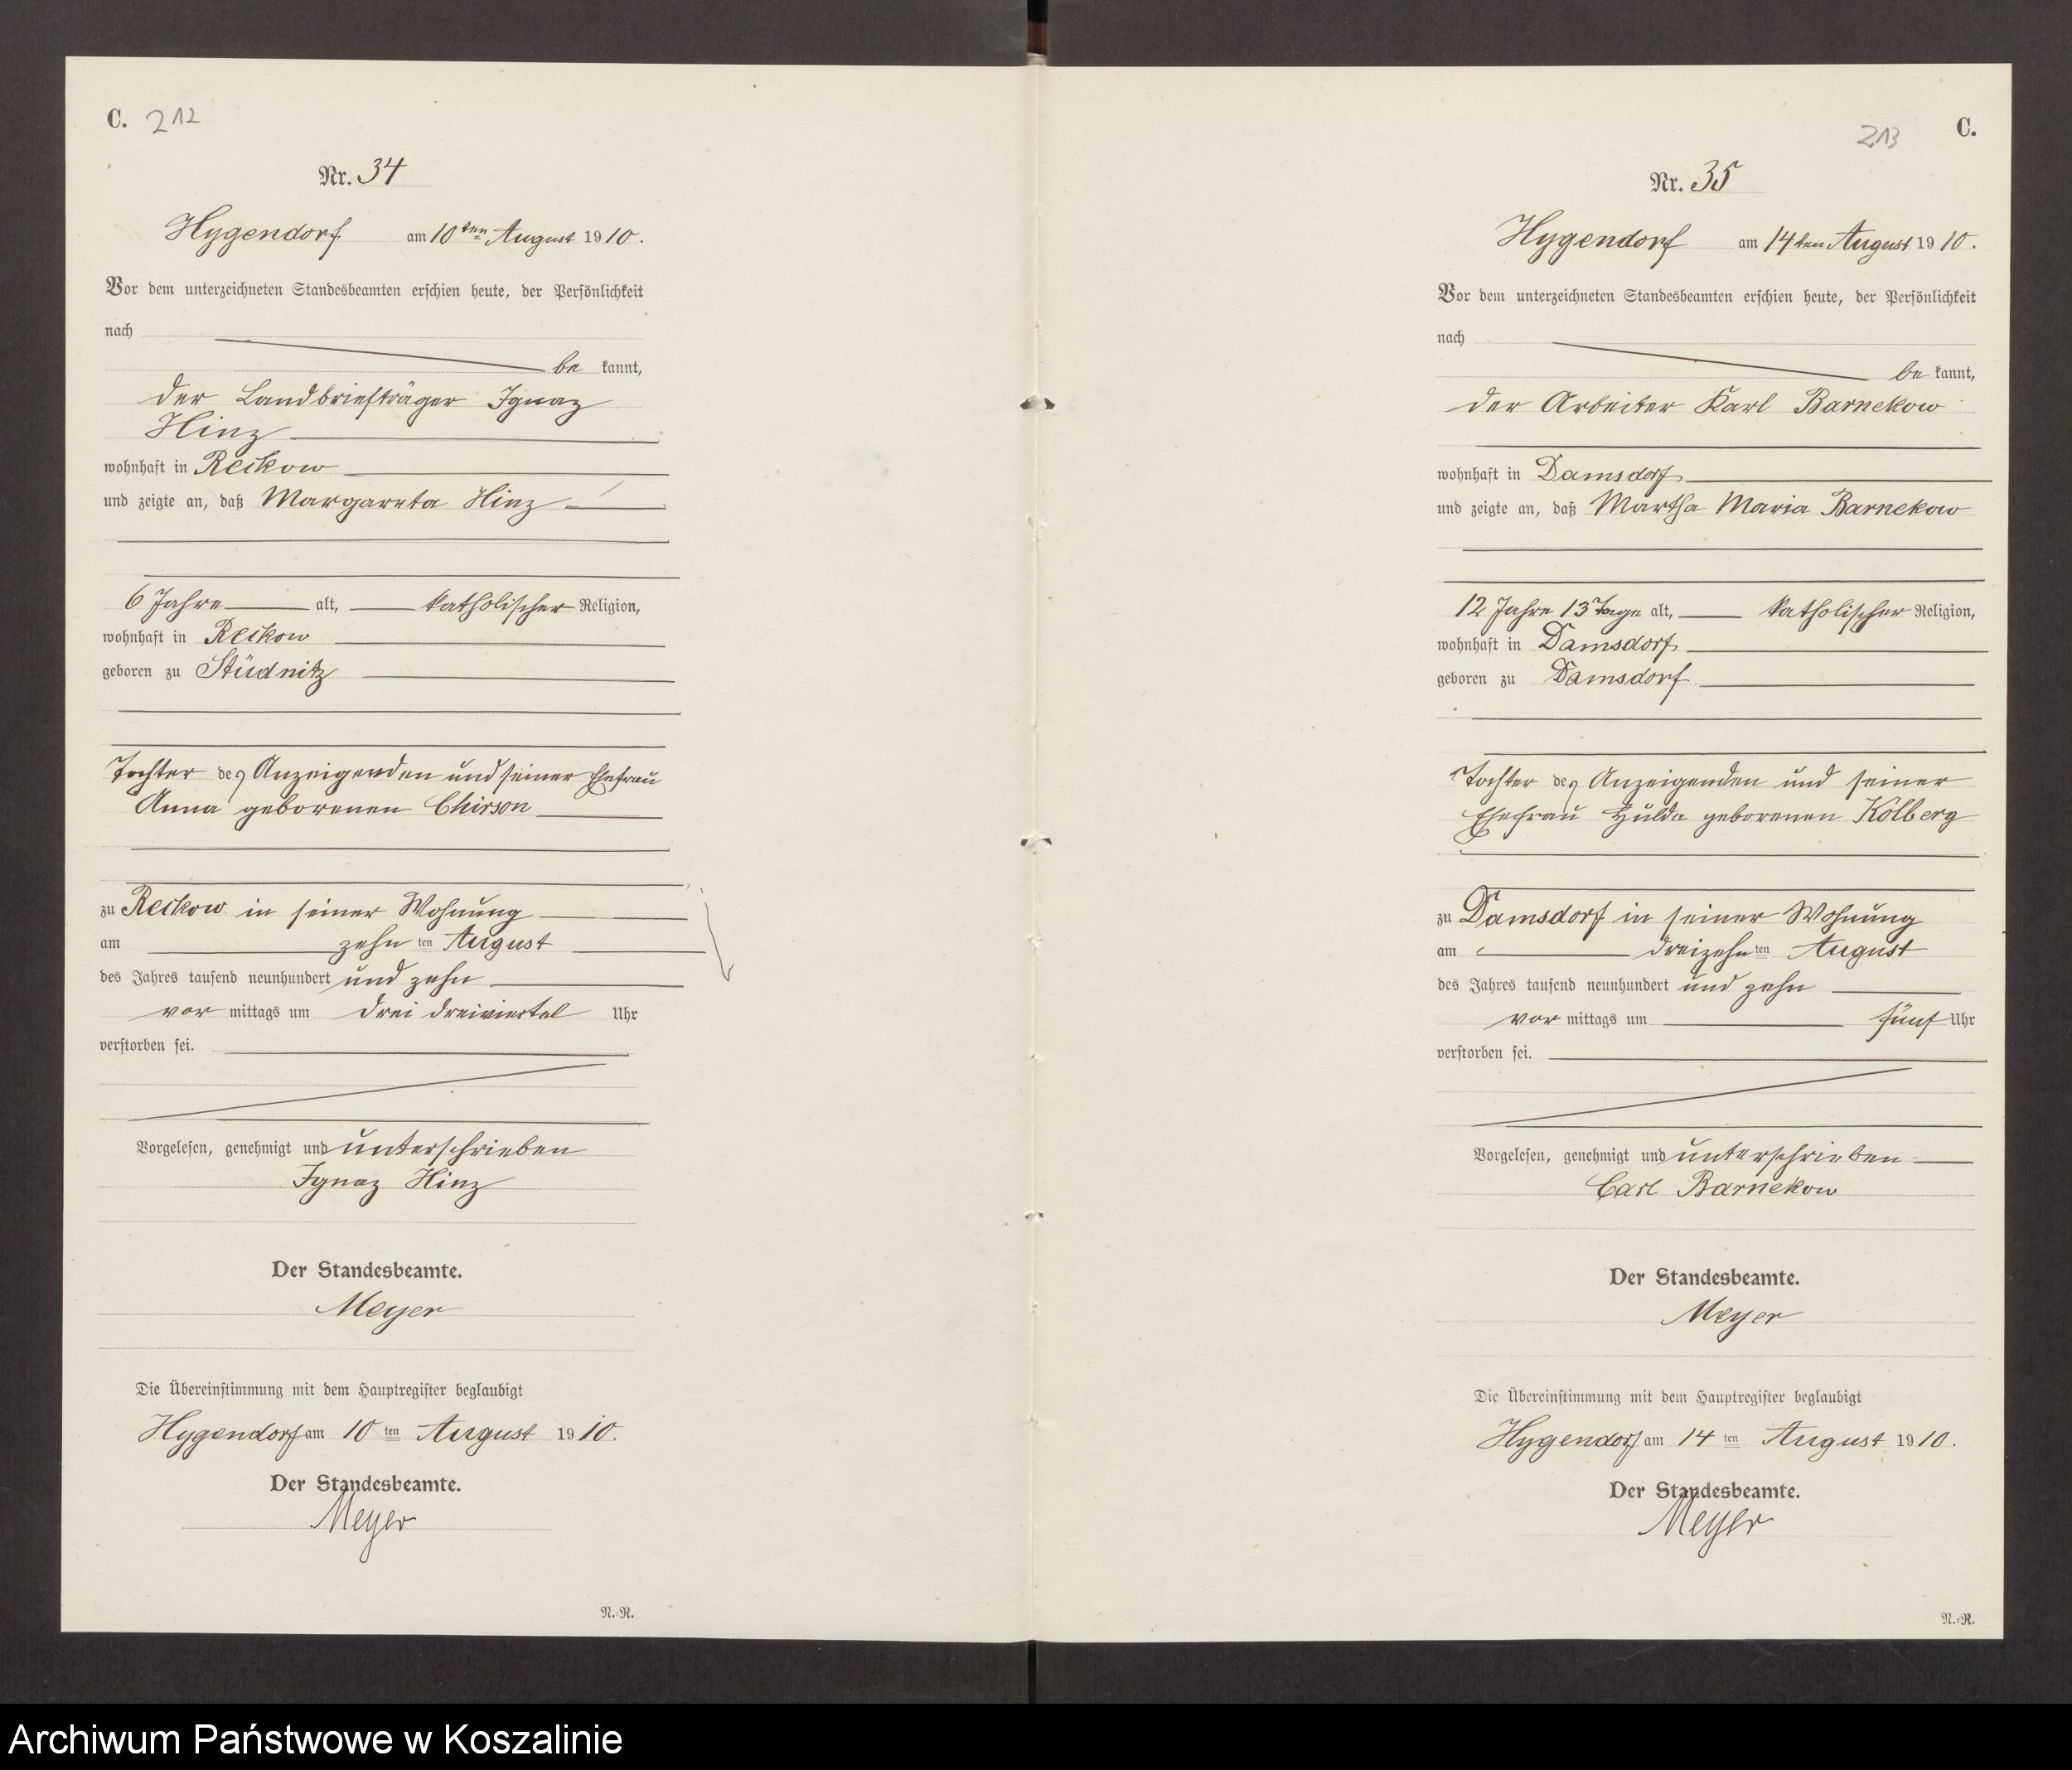 C. 212
Nr. 34
Hygendorf am 10ten August 1910.
Vor dem unterzeichneten Standesbeamten erschien heute, der Persönlichkeit
nach
be kannt,
der Landbriefträger Ignaz
Hinz
wohnhaft in Reckow
und zeigte an, daß Margareta Hinz
6 Jahre alt, katholischer Religion,
wohnhaft in Reckow
geboren zu Stüdnitz
Tochter des Anzeigenden und seiner Ehefrau
Anna geborenen Chirson
zu Reckow in seiner Wohnung
am zehn ten August
des Jahres tausend neunhundert und zehn
vor mittags um drei dreiviertel Uhr
verstorben sei.
Vorgelesen, genehmigt und unterschrieben
Ignaz Hinz
Der Standesbeamte.
Meyer
Die Übereinstimmung mit dem Hauptregister beglaubigt
Hygendorf am 10 ten August 1910.
Der Standesbeamte.
Meyer
N.-R.
213 C.
Nr. 35
Hygendorf am 14ten August 1910.
Vor dem unterzeichneten Standesbeamten erschien heute, der Persönlichkeit
nach
be kannt,
der Arbeiter Karl Barnekow
wohnhaft in Damsdorf
und zeigte an, daß Martha Maria Barnekow
12 Jahre 13 Tage alt, katholischer Religion,
wohnhaft in Damsdorf
geboren zu Damsdorf
Tochter des Anzeigenden und seiner
Ehefrau Hulda geborenen Kolberg
zu Damsdorf in seiner Wohnung
am dreizehn ten August
des Jahres tausend neunhundert und zehn
vor mittags um fünf Uhr
verstorben sei.
Vorgelesen, genehmigt und unterschrieben
Carl Barnekow
Der Standesbeamte.
Meyer
Die Übereinstimmung mit dem Hauptregister beglaubigt
Hygendorf am 14 ten August 1910.
Der Standesbeamte.
Meyer
N.-R.
Archiwum Państwowe w Koszalinie